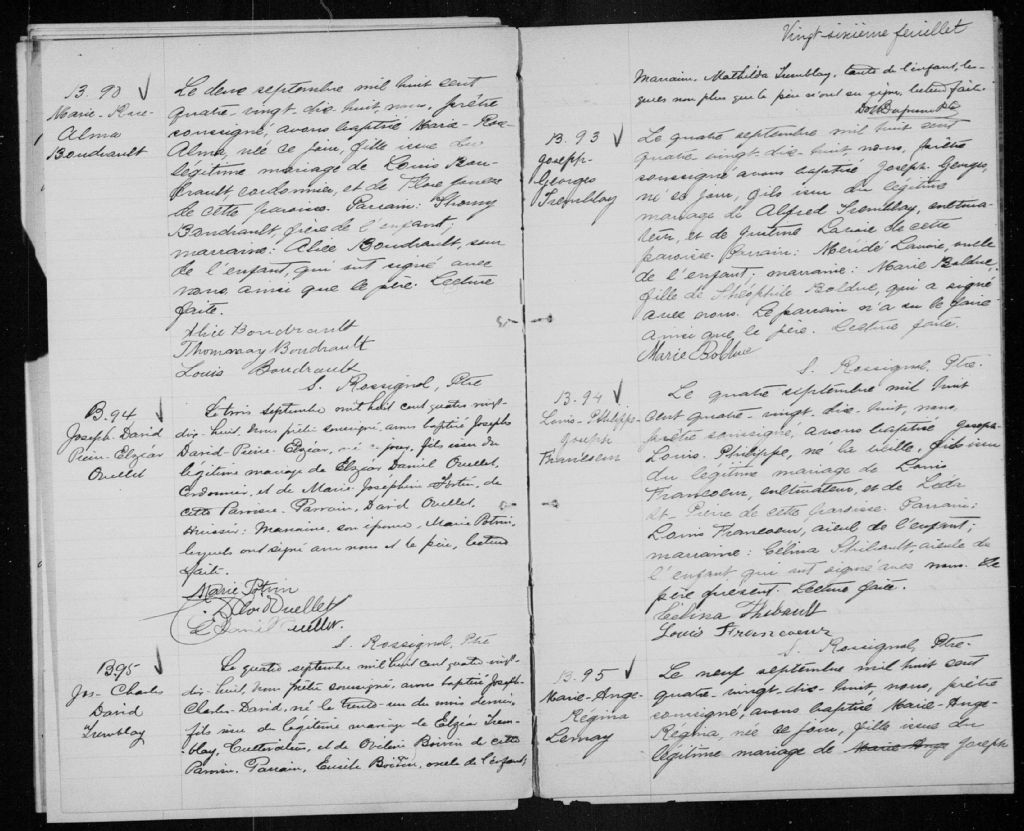 B. 90
Marie-Rose
Alma
Boudrault
Le deux septembre mil huit cent
quatre-vingt-dix-huit nous, prêtre
soussigné, avons baptisé Marie-Rose
Alma, née ce jour, fille issue du
légitime mariage de Louis Bou-
drault cordonnier, et de Flore
de cette paroisse. Parrain: Thommy
Baudrault, frère de l'enfant;
marraine: Alice Boudrault, sœur
de l'enfant, qui ont signé avec
nous ainsi que le père. Lecture
faite.
Alice Boudrault
Thommay Boudrault
Louis Boudrault
S. Rossignol, Ptre
B. 94
Joseph-David
Pierre-Elzéar
Ouellet
Le trois septembre mil huit cent quatre vingt-
dix-huit, nous prêtre soussigné, avons baptisé Joseph
David-Pierre-Elzéar, né ce jour, fils issu du
légitime mariage de Elzéar Daniel Ouellet,
Cordonnier, et de Marie-Josephine Fortin, de
cette Paroisse. Parrain, David Ouellet,
Huissier: Marraine, son épouse, Marie Potvin,
lesquels ont signé avec nous et le père, lecture
faite.
Marie Potvin
Ouellet
E Daniel Ouellet.
S. Rossignol, Ptre
B.95
Jos-Charles
David
Tremblay
Le quatre septembre mil huit cent quatre vingt-
dix-huit, Nous prêtre soussigné, avons baptisé Joseph-
Charles-David, né le trente-un du mois dernier,
fils issu du légitime mariage de Elzéar Trem-
blay, Cultivateur, et de Boivin de cette
Paroisse. Parrain, Boivin, oncle de l'enfant;
Vingt-sixième feuillet
Marraine, Mathilda Tremblay, tante de l'enfant, les-
quels non plus que le père n'ont su signer, lecture faite.
B. 93
Joseph-
Georges
Tremblay
Le quatre septembre mil huit cent
quatre vingt-dix-huit nous, prêtre
soussigné avons baptisé Joseph-Georges,
né ce jour, fils issu du légitime
mariage de Alfred Tremblay, cultiva-
teur, et de Lavoie de cette
paroisse. Parrain: Méridé Lavoie, oncle
de l'enfant; marraine: Marie Bolduc,
fille de Théophile Bolduc, qui a signé
avec nous. Le parrain n'a su le faire
ainsi que le père. Lecture faite.
Marie Bolduc
S. Rossignol, Ptre.
B. 94
Louis-Philippe
Joseph
Francoeur
Le quatre septembre mil huit
cent quatre-vingt-dix-huit, nous,
prêtre soussigné, avons baptisé Joseph-
Louis-Philippe, né la veille, fils issu
du légitime mariage de Louis
Francoeur, cultivateur, et de Léda
St-Pierre de cette paroisse. Parrain:
Louis Francoeur, aïeul de l'enfant;
marraine: Célina Thibault, aïeule de
l'enfant qui ont signé avec nous. Le
père présent. Lecture faite.
Célina Thibault
Louis Francoeur
S. Rossignol, Ptre.
B. 95
Marie-Ange
Régina
Lemay
Le neuf septembre mil huit cent
quatre-vingt-dix-huit, nous, prêtre
soussigné, avons baptisé Marie-Ange-
Régina, née ce jour, fille issue du
légitime mariage de Marie Ange Joseph